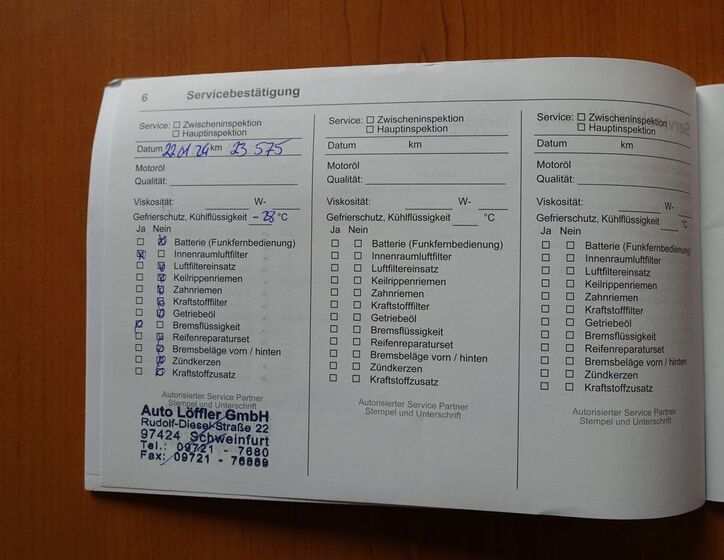 6 Servicebestätigung
Service: ☐ Zwischeninspektion
☐ Hauptinspektion
Datum 22 01 24 km 23 575
Motoröl
Qualität:
Viskosität: W-
Gefrierschutz, Kühlflüssigkeit -28 °C
Ja Nein
Batterie (Funkfernbedienung)
Innenraumluftfilter
Luftfiltereinsatz
Keilrippenriemen
Zahnriemen
Kraftstofffilter
Getriebeöl
Bremsflüssigkeit
Reifenreparaturset
Bremsbeläge vorn / hinten
Zündkerzen
Kraftstoffzusatz
Autorisierter Service Partner
Stempel und Unterschrift
Auto Löffler GmbH
Rudolf-Diesel-Straße 22
97424 Schweinfurt
Tel.: 09721 - 7680
Fax: 09721 - 76889
Service: ☐ Zwischeninspektion
☐ Hauptinspektion
Datum km
Motoröl
Qualität:
Viskosität: W-
Gefrierschutz, Kühlflüssigkeit °C
Ja Nein
☐ ☐ Batterie (Funkfernbedienung)
☐ ☐ Innenraumluftfilter
☐ ☐ Luftfiltereinsatz
☐ ☐ Keilrippenriemen
☐ ☐ Zahnriemen
☐ ☐ Kraftstofffilter
☐ ☐ Getriebeöl
☐ ☐ Bremsflüssigkeit
☐ ☐ Reifenreparaturset
☐ ☐ Bremsbeläge vorn / hinten
☐ ☐ Zündkerzen
☐ ☐ Kraftstoffzusatz
Autorisierter Service Partner
Stempel und Unterschrift
Service: ☐ Zwischeninspektion
☐ Hauptinspektion
Datum km
Motoröl
Qualität:
Viskosität: W-
Gefrierschutz, Kühlflüssigkeit °C
Ja Nein
☐ ☐ Batterie (Funkfernbedienung)
☐ ☐ Innenraumluftfilter
☐ ☐ Luftfiltereinsatz
☐ ☐ Keilrippenriemen
☐ ☐ Zahnriemen
☐ ☐ Kraftstofffilter
☐ ☐ Getriebeöl
☐ ☐ Bremsflüssigkeit
☐ ☐ Reifenreparaturset
☐ ☐ Bremsbeläge vorn / hinten
☐ ☐ Zündkerzen
☐ ☐ Kraftstoffzusatz
Autorisierter Service Partner
Stempel und Unterschrift